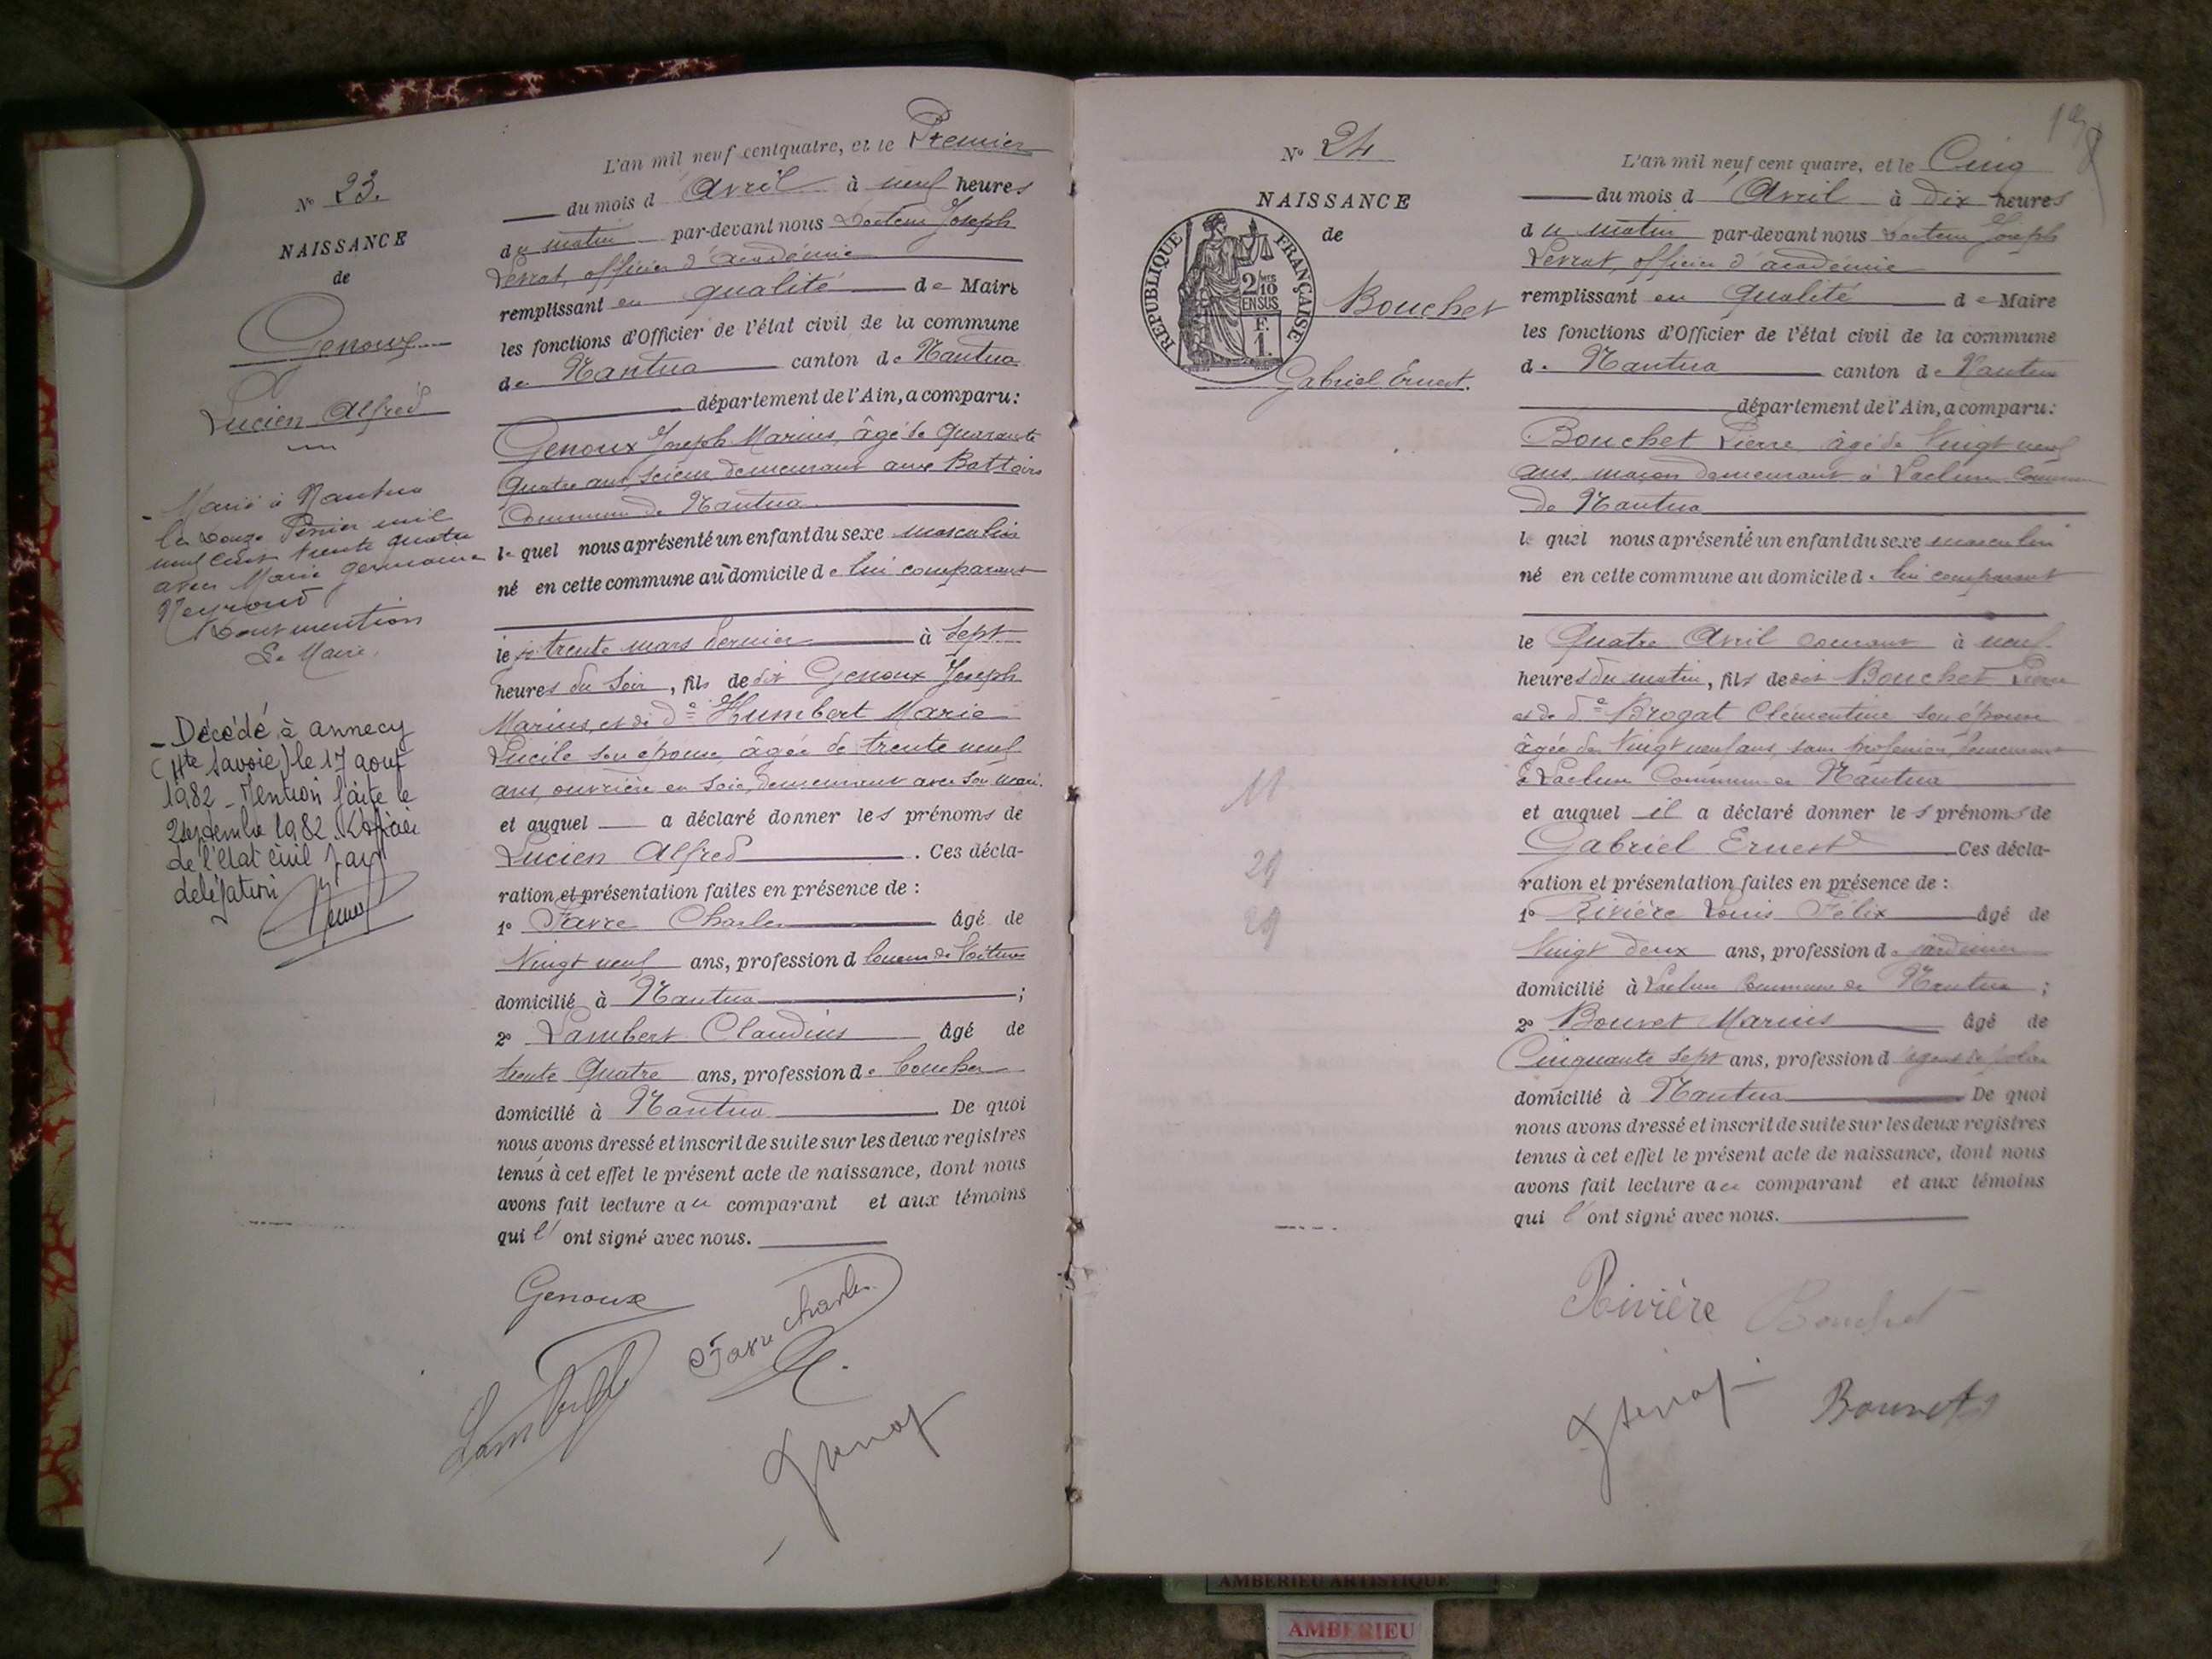 N° 23.
NAISSANCE
de
Genoux
Lucien Alfred
- Marié à Nantua
le douze Février mil
neuf cent trente quatre
avec Marie Germaine
Neyroud
Dont mention
Le Maire.
- Décédé à annecy
(Hte Savoie) le 17 août
1982 - Mention faite le
2 septembre 1982. L'officier
de l'état civil par
délégation
L'an mil neuf cent quatre, et le Premier
du mois d'Avril à neuf heures
du matin par-devant nous Docteur Joseph
officier d'académie
remplissant en qualité de Maire
les fonctions d'Officier de l'état civil de la commune
de Nantua canton de Nantua
département de l'Ain, a comparu:
Genoux Joseph Marius, âgé de quarante
quatre ans, scieur, demeurant aux Battoirs
Commune de Nantua
lequel nous a présenté un enfant du sexe masculin
né en cette commune au domicile de lui comparant
le trente mars dernier à sept
heures du soir, fils de dit Genoux Joseph
Marius, et de de Humbert Marie
Lucile son épouse, âgée de trente neuf
ans, ouvrière en soie, demeurant avec son mari.
et auquel a déclaré donner les prénoms de
Lucien Alfred . Ces décla-
ration et présentation faites en présence de :
1° Favre Charles âgé de
Vingt neuf ans, profession d loueur de Voitures
domicilié à Nantua ;
2° Lambert Claudius âgé de
trente quatre ans, profession de boucher
domicilié à Nantua De quoi
nous avons dressé et inscrit de suite sur les deux registres
tenus à cet effet le présent acte de naissance, dont nous
avons fait lecture au comparant et aux témoins
qui l'ont signé avec nous.
Genoux
Favre Charles
Lambert
N° 24
NAISSANCE
de
REPUBLIQUE FRANÇAISE
2/10
EN SUS
F.
1.
Bouchet
Gabriel Ernest.
11
29
29
L'an mil neuf cent quatre, et le Cinq
du mois d'Avril à dix heures
du matin par-devant nous Docteur Joseph
officier d'académie
remplissant en qualité de Maire
les fonctions d'Officier de l'état civil de la commune
de Nantua canton de Nantua
département de l'Ain, a comparu:
Bouchet Pierre âgé de Vingt neuf
ans, maçon demeurant à commune
de Nantua
lequel nous a présenté un enfant du sexe masculin
né en cette commune au domicile de lui comparant
le Quatre Avril courant à neuf
heures du matin, fils de dit Bouchet Pierre
et de de Brogat Clémentine son épouse
âgée de Vingt neuf ans, sans profession, demeurant
à Commune de Nantua
et auquel il a déclaré donner les prénoms de
Gabriel Ernest Ces décla-
ration et présentation faites en présence de :
1° Rivière Louis Félix âgé de
Vingt deux ans, profession de jardinier
domicilié à Commune de Nantua ;
2° Bouvet Marius âgé de
Cinquante sept ans, profession d'agent de police
domicilié à Nantua De quoi
nous avons dressé et inscrit de suite sur les deux registres
tenus à cet effet le présent acte de naissance, dont nous
avons fait lecture au comparant et aux témoins
qui l'ont signé avec nous.
Rivière Bouchet
Bouvet
AMBERIEU ARTISTIQUE
AMBERIEU